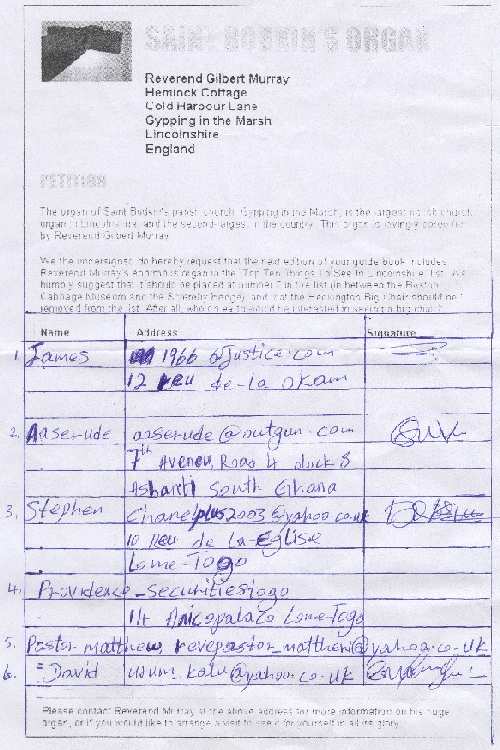 SAINT BODKIN'S ORGAN
Reverend Gilbert Murray
Hemlock Cottage
Cold Harbour Lane
Gypping in the Marsh
Lincolnshire
England
PETITION
The organ of Saint Bodkin's parish church, Gypping in the Marsh, is the largest parish church
organ in Lincolnshire and the second-largest in the country. This organ is lovingly
by Reverend Gilbert Murray.
We the undersigned do hereby request that the next edition of your guide book includes
Reverend Murray's enormous organ in the "Top Ten Things To See In Lincolnshire" list. We
humbly suggest that it should be placed at number in the list (in between the
Cabbage Museum and the and that the Heckington Big Chair should be
removed from the list. After all, who would be interested in seeing a big chair
Name Address Signature
1 James 1966 @Justice.com
12 reu de-la okam
2. Aaserude aaserude@outgun.com
7th Aveneu, Road 4 block 8
Ashanti South Ghana
3. Stephen Chanelplus2003@yahoo.co.uk
10 reu de La-Eglise
Lome-Togo
4. Providence-Securitiestogo
114 Anicopalaco Lome-Togo
5. Pastor-matthew, revepastor_matthew@yahoo.co.uk
6. David kalu@yahoo.co.uk
Please contact Reverend Murray at the above address for more information on his huge
organ, or if you would like to arrange a visit to see it for yourself in all its glory.